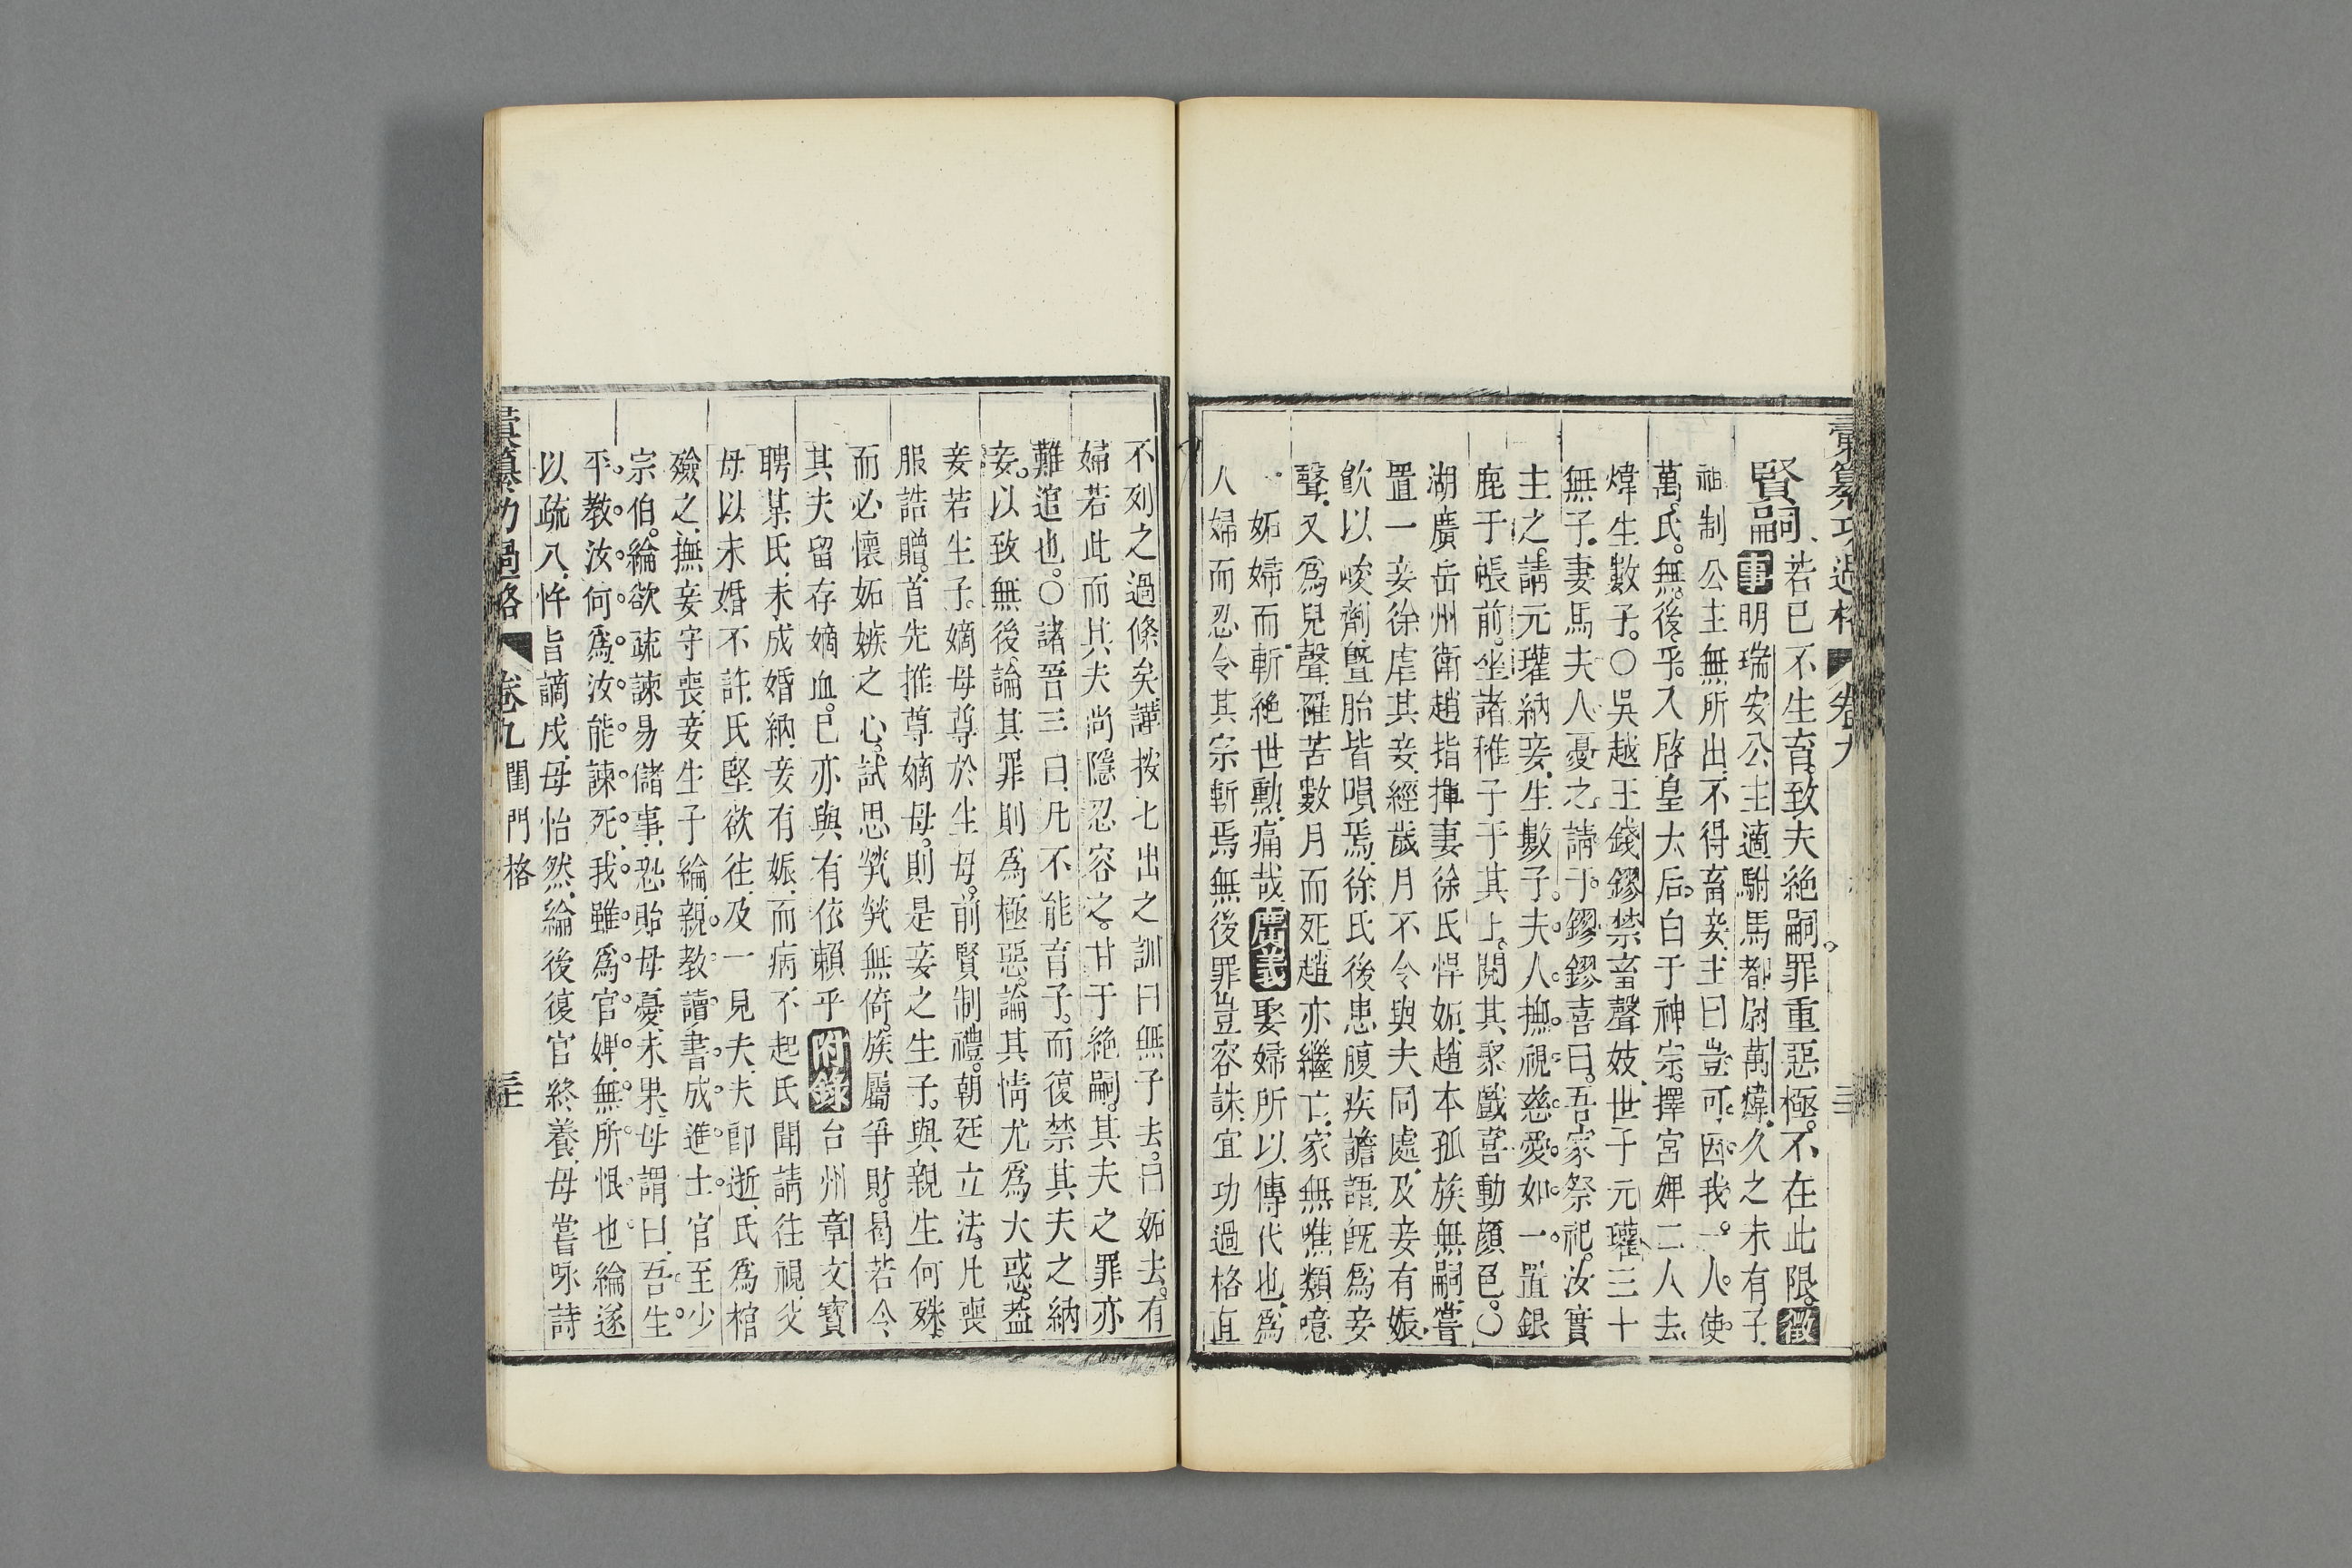 彙纂功過格 卷九
賢嗣、若已不生育。致夫絶嗣。罪重惡極。不在此限。徵
事明瑞安公主適駙馬都尉萬煒。久之未有子。
祖制公主無所出。不得畜妾。主曰豈可因我一人。使
萬氏。無後乎。入啓皇太后。白于神宗。擇宮婢二人去。
煒生數子。○吳越王錢鏐禁畜聲妓。世子元瓘三十
無子。妻馬夫人憂之。請于鏐。鏐喜曰。吾家祭祀。汝實
主之。請元瓘納妾。生數子。夫人撫視慈愛如一。置銀
鹿于帳前。坐諸稚子于其上。閱其聚戲。喜動顔色。○
湖廣岳州衛趙指揮妻徐氏悍妬。趙本孤族無嗣。嘗
置一妾。徐虐其妾。經歲月不令與夫同處。及妾有娠。
飲以峻劑。墮胎皆隕焉。徐氏後患腹疾。譫語。旣爲妾
聲。又爲兒聲。罹苦數月而死。趙亦繼亡。家無噍類。噫
一妬婦而斬絶世勳。痛哉。廣義娶婦所以傳代也。爲
人婦而忍令其宗斬焉無後。罪豈容誅。宜功過格直
不列之過條矣。謹按七出之訓曰無子去。曰妬去。有
婦若此而其夫尚隱忍容之。甘于絶嗣。其夫之罪亦
難追也。○諸吾三曰。凡不能育子。而復禁其夫之納
妾。以致無後。論其罪則爲極惡。論其情尤爲大惑。蓋
妾若生子。嫡母尊於生母。前賢制禮。朝廷立法。凡喪
服誥贈。首先推尊嫡母。則是妾之生子。與親生何殊。
而必懷妬嫉之心。試思煢煢無倚。族屬爭財。曷若令
其夫留存嫡血。已亦與有依賴乎。附錄台州章文寶
聘某氏。未成婚。納妾有娠。而病不起。氏聞請往視。父
母以未婚不許。氏堅欲往。及一見夫。夫卽逝。氏爲棺
殮之。撫妾守喪。妾生子綸。親教讀書。成進士。官至少
宗伯。綸欲疏諫易儲事。恐貽母憂。未果。母謂曰。吾生
平教汝何爲。汝能諫死。我雖爲官婢。無所恨也。綸遂
以疏入。忤旨謫戍。母怡然。綸後復官終養。母嘗咏詩
彙纂功過格 卷九 閨門格 三十